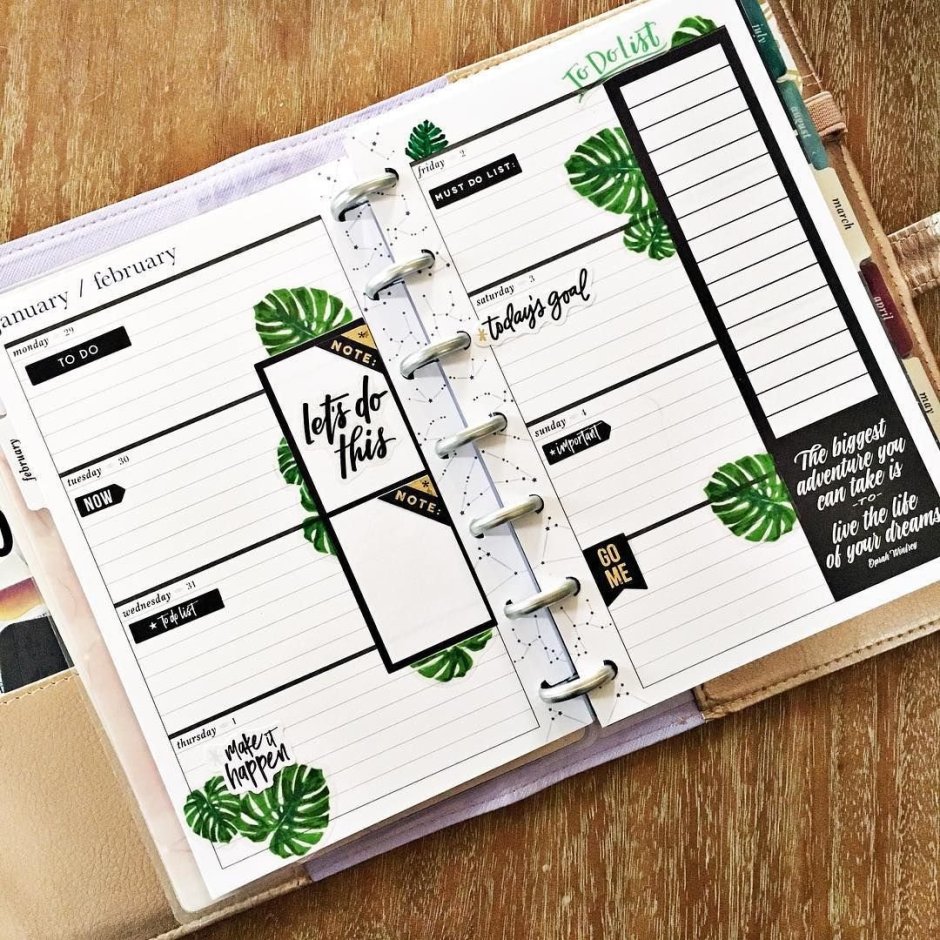 january / february
monday 29
TO DO
NOTE:
let's do
this
tuesday 30
NOW
NOTE:
wednesday 31
to do list
thursday 1
make it
happen
february
To Do List
friday 2
MUST DO LIST:
saturday 3
today's goal
sunday 4
important
GO
ME
The biggest
adventure you
can take is
-TO-
live the life
of your dreams
Oprah Winfrey
july
august
march
april
may